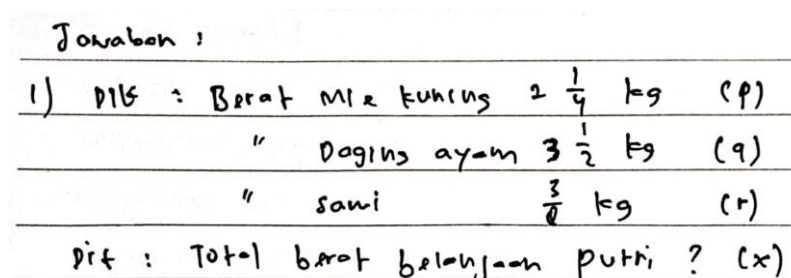 Jawaban :
1) Dik : Berat Mie kuning 2 1/4 kg (p)
" Daging ayam 3 1/2 kg (q)
" sawi 3/8 kg (r)
Dit : Total berat belanjaan putri ? (x)